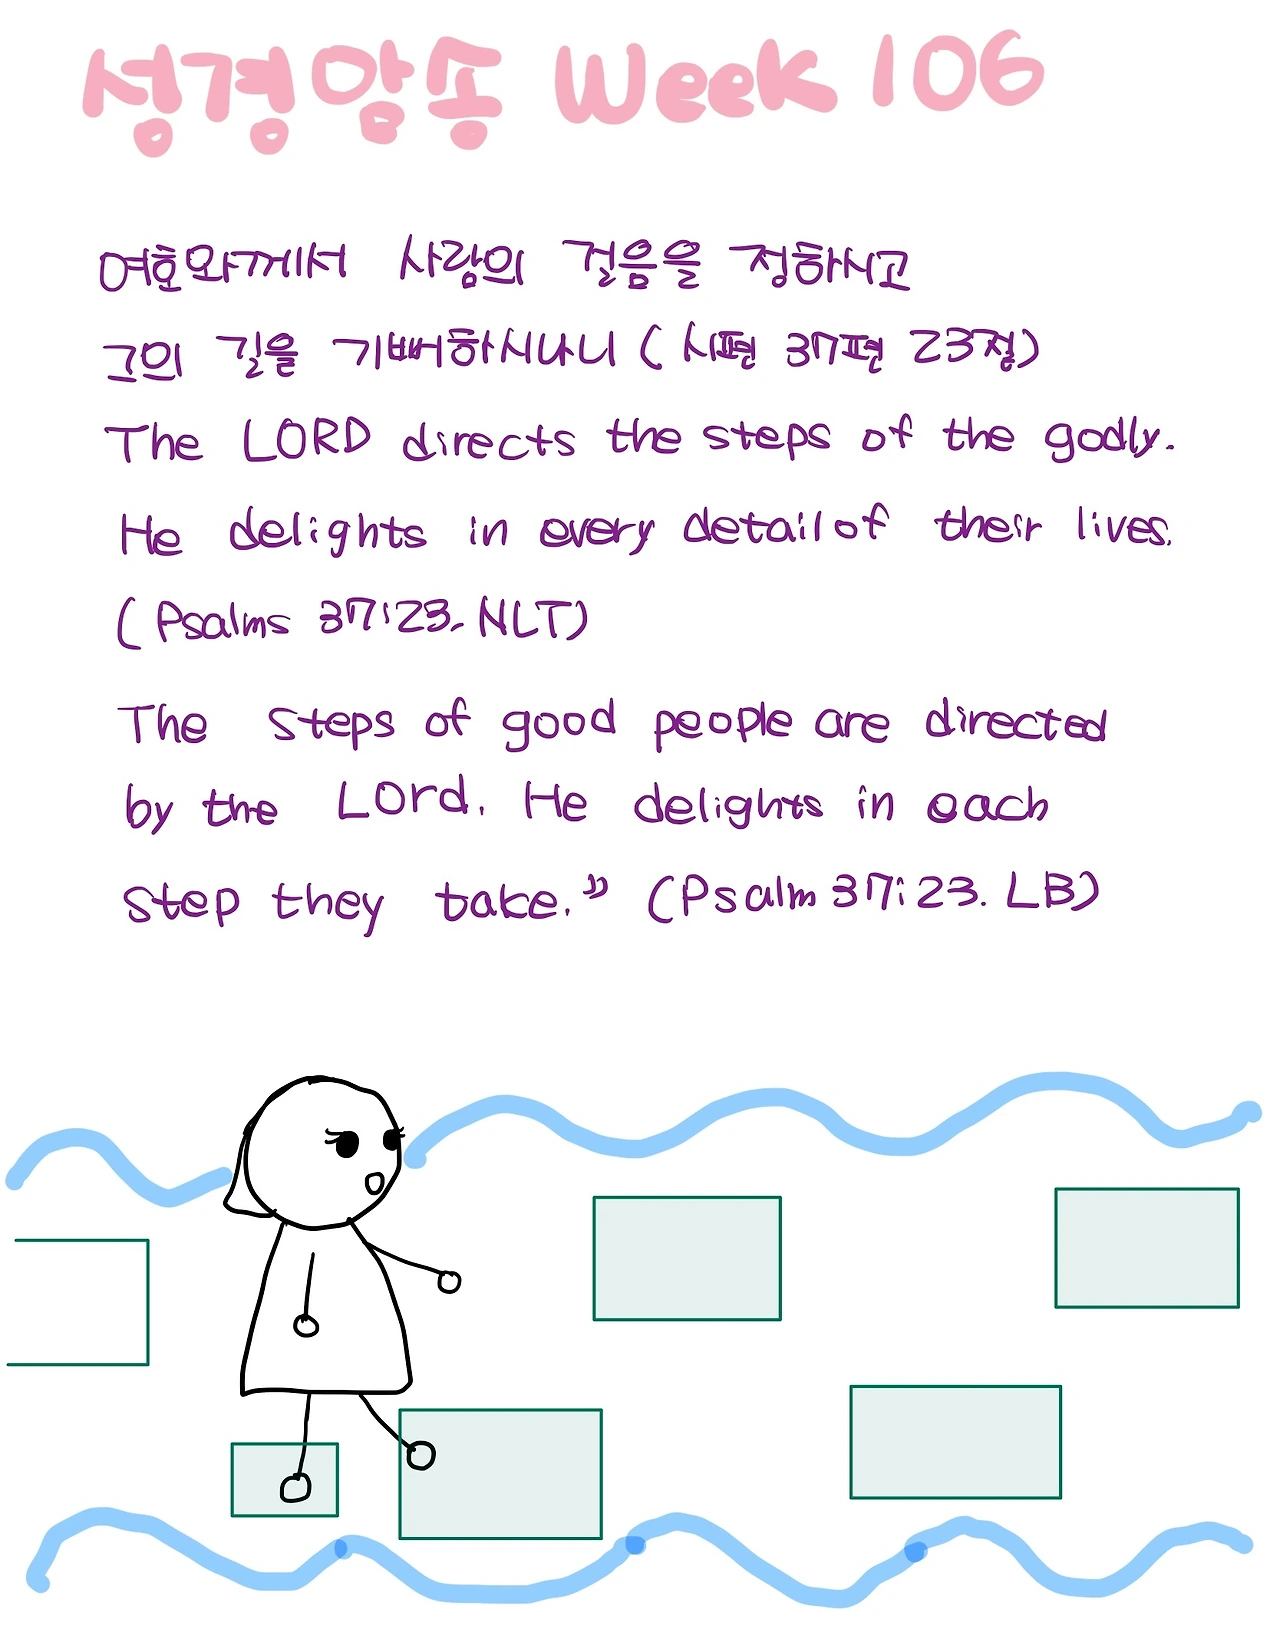 성경암송 Week 106
여호와께서 사람의 걸음을 정하시고
그의 길을 기뻐하시나니 (시편 37편 23절)
The LORD directs the steps of the godly.
He delights in every detail of their lives.
(Psalms 37:23. NLT)
The steps of good people are directed
by the Lord. He delights in each
step they take.” (Psalm 37:23. LB)